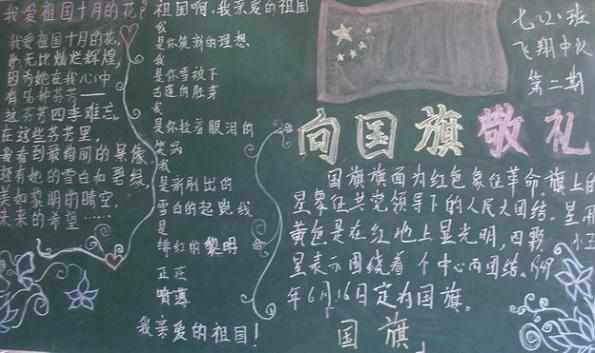 我爱祖国十月的花
我爱祖国十月的花,
无比灿烂辉煌,
因为她在我心中
有一种芬芳——
这芬芳四季难忘。
在这些芬芳里,
我看到最绚丽的景象,
还有她的雪白如
美如黎明的晴空,
未来的希望……
祖国啊,我亲爱的祖国
我
是你簇新的理想,
我
是你雪被下
古莲的胚芽
我
是你挂着眼泪的
笑涡
我
是新刷出的
雪白的起跑线
是
绯红的黎明
正在
喷薄
我亲爱的祖国!
七(2)班
飞翔中队
第二期
向国旗敬礼
国旗旗面为红色象征革命,旗上的
星象征共党领导下的人民大团结。星用
黄色是在红地上显光明,四颗小五
星表示围绕着一个中心而团结。
年6月16日定为国旗。
国旗